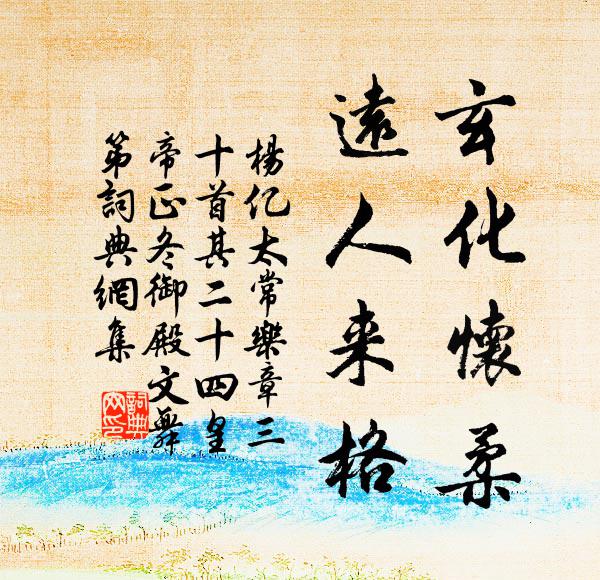 玄化懷柔
遠人来格
楊億太常樂章三
十首其二十四皇
帝正冬御殿文舞
第詞典網集
詞典
网印